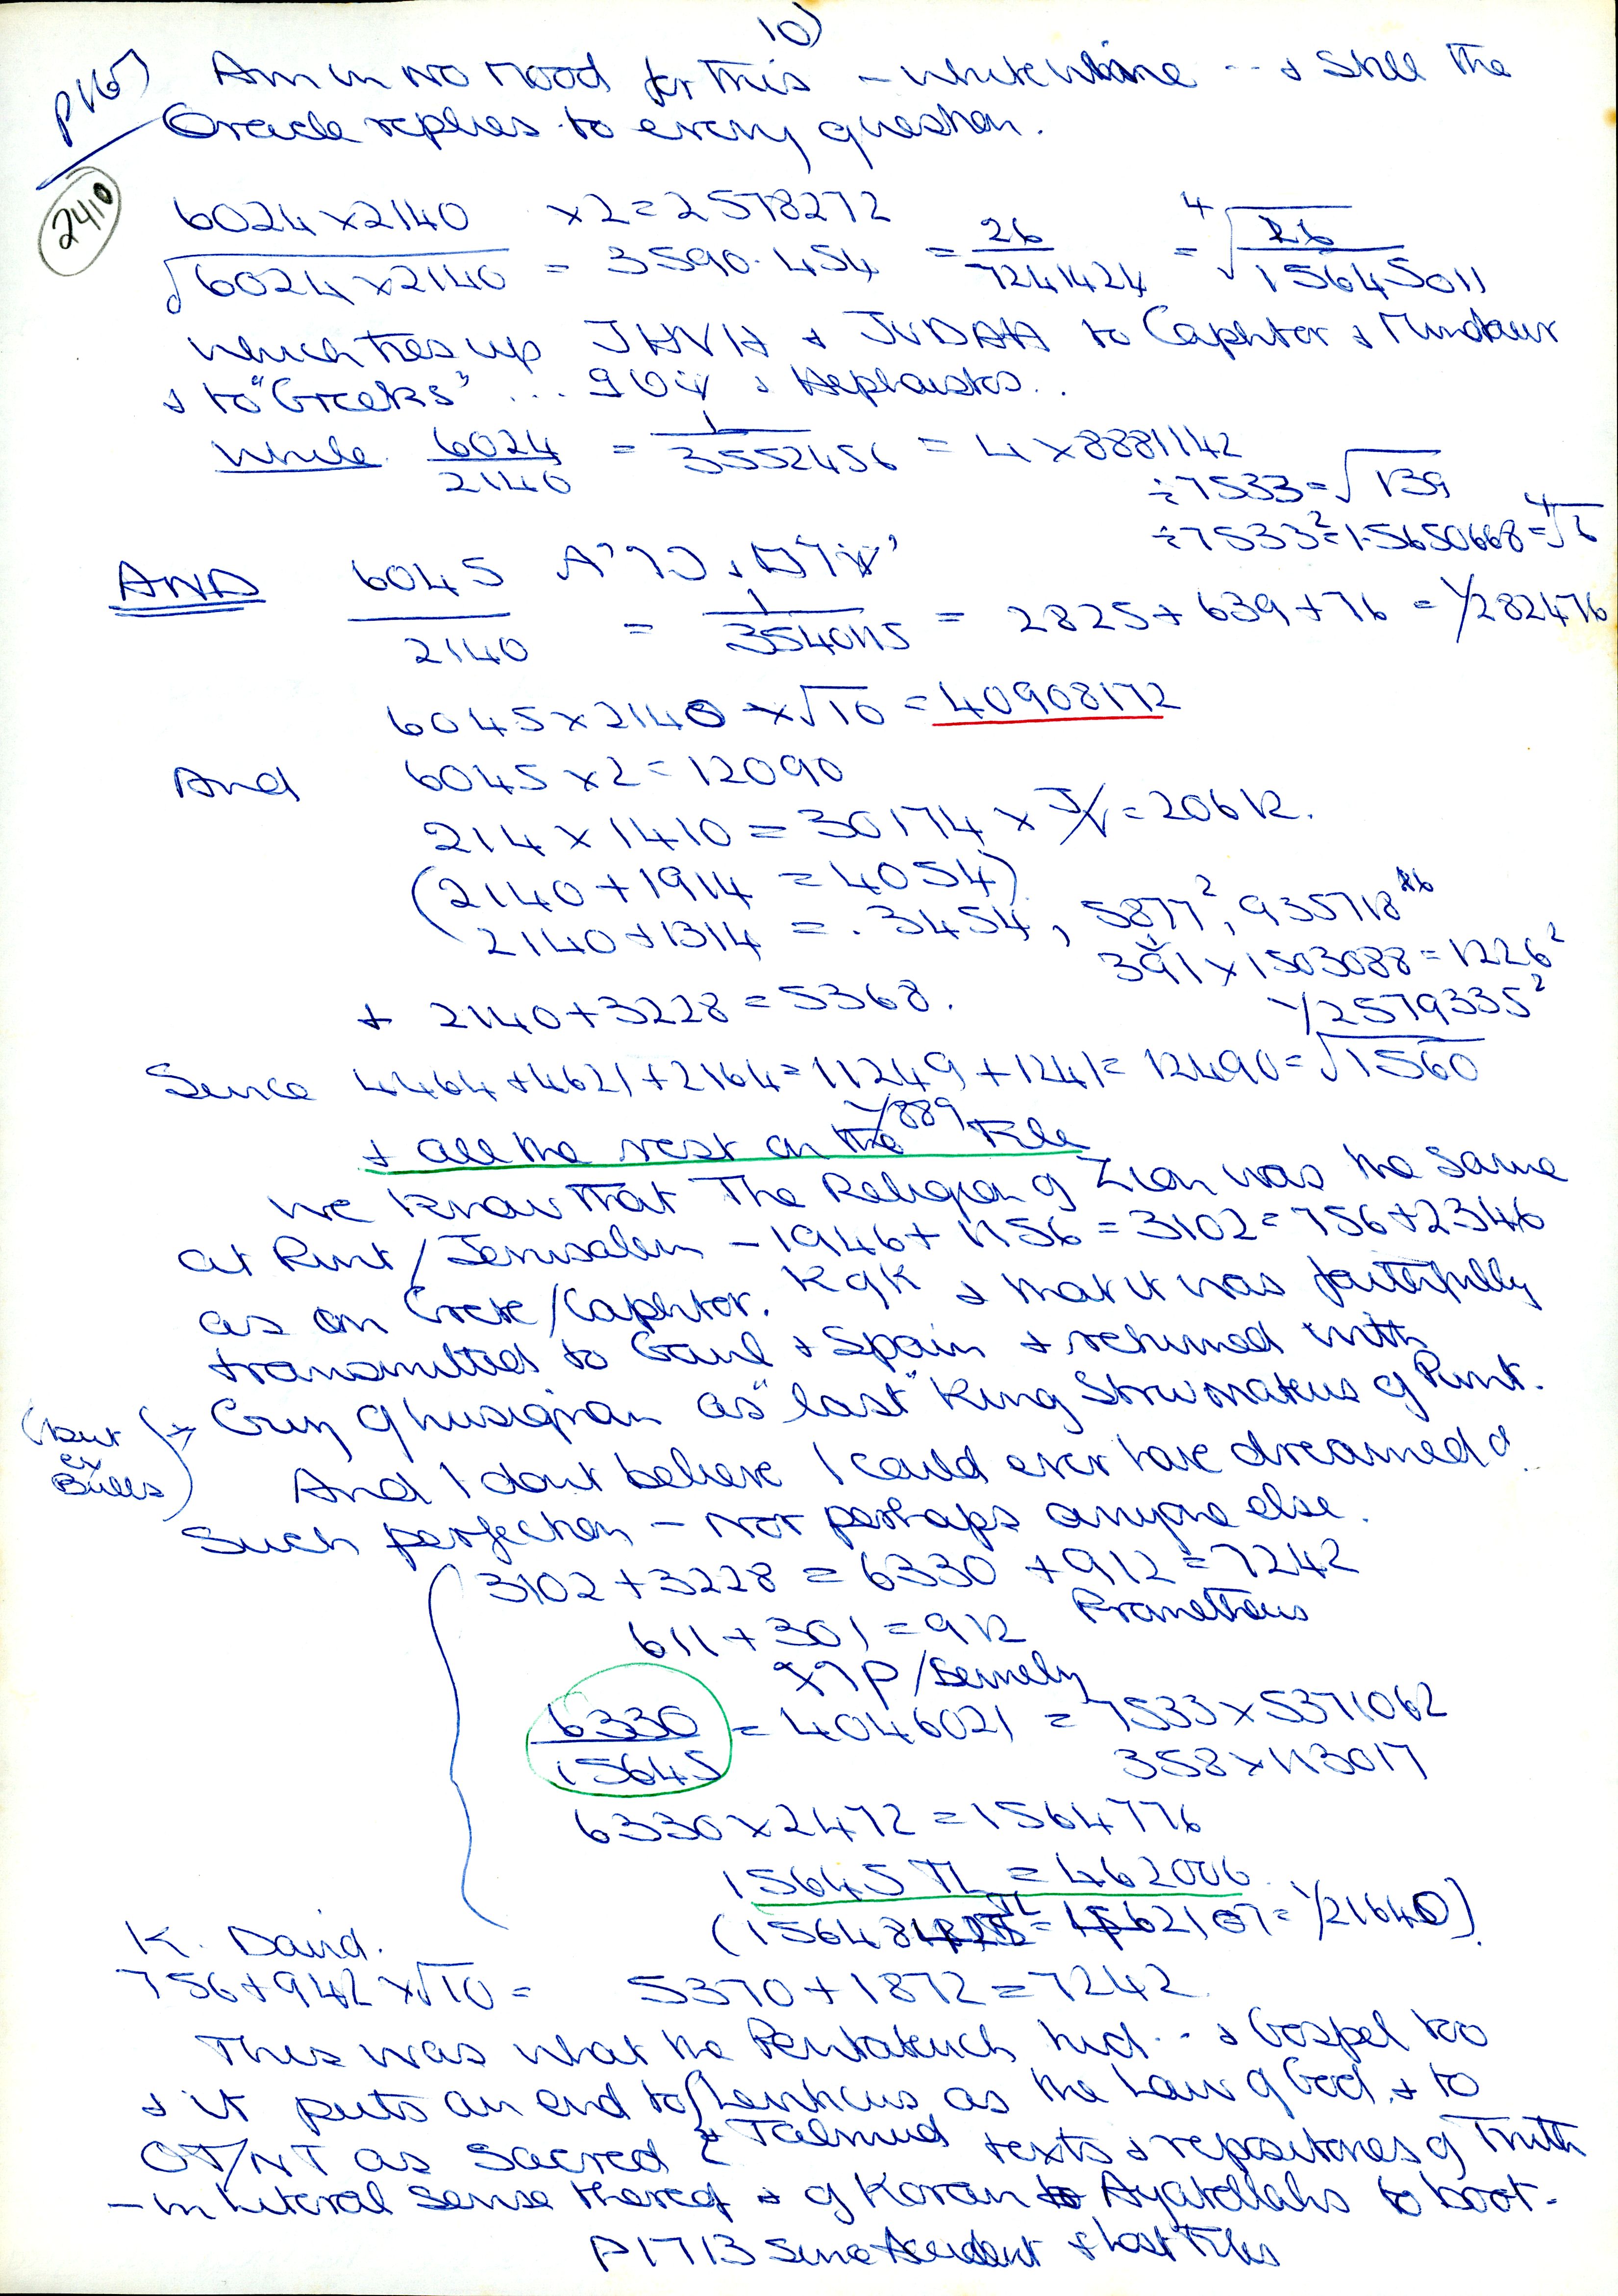 10)
P165) Am in no mood for this – white wine -- & still the
Oracle replies to every question.
2410
6024 × 2140 × 2 = 2578272
√6024 × 2140 = 3590.454 = 26/7241424 = ⁴√26/15645011
which ties up JHVH & JUDAH to Caphtor & Minotaur
& to "Greeks" ... & Hephaistos..
While 6024/2140 = 1/3552456 = 4 × 8881142
÷7533 = √139
÷7533² = 1.5650668 = ⁴√6
AND 6045
6045/2140 = 1/3540115 = 2825 + 639 + 76 = 1/282476
6045 × 2140 × √10 = 40908172
And 6045 × 2 = 12090
214 × 1410 = 30174 × J/V = 20612.
(2140 + 1914 = 4054)
2140 + 1314 = .3454, 5877², 935718
391 × 1503088 = 1226²
1/2579335²
+ 2140 + 3228 = 5368.
Since 4464 + 4621 + 2164 = 11249 + 1241 = 12490 = √1560
& all the rest on the 1/889 File
we know that The Religion of Zion was the same
at Punt/Jerusalem – 1946 + 1156 = 3102 = 756 + 2346
as on Crete/Caphtor. K of K & that it was faithfully
transmitted to Gaul & Spain & returned with
Guy of Lusignan as "last" King of Punt.
(but ex Bulls)
And I dont believe I could ever have dreamed of
such perfection – nor perhaps anyone else.
3102 + 3228 = 6330 + 912 = 7242
Prometheus
611 + 301 = 912
/Semely
6330/15645 = 4046021 = 7533 × 5371062
358 × 113017
6330 × 2472 = 1564776
15645 TL = 462006
= 1/21640)
K. David.
756 + 942 × √10 = 5370 + 1872 = 7242.
This was what the Pentateuch hid .. & Gospel too
& it puts an end to Leviticus as the Law of God, & to
OT/NT as sacred & Talmud texts & repositories of Truth
– in literal sense thereof & of Koran Ayatollahs to boot.
P1713 since Accident & lost Files